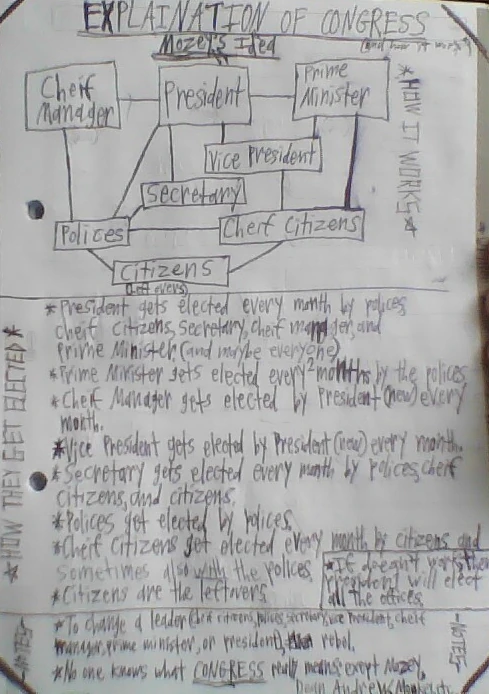 EXPLAINATION OF CONGRESS
Mozey's Idea
(and how it works)
Cheif Manager
President
Prime Minister
Vice President
Secretary
Polices
Cheif Citizens
Citizens
(left overs)
*HOW IT WORKS*
*HOW THEY GET ELECTED*
*President gets elected every month by polices,
cheif citizens, secretary, cheif manager, and
Prime Minister (and maybe everyone)
*Prime Minister gets elected every 2 months by the polices
*Cheif Manager gets elected by President (new) every
month.
*Vice President gets elected by President (new) every month.
*Secretary gets elected every month by polices, cheif
citizens, and citizens.
*Polices get elected by polices.
*Cheif Citizens get elected every month by citizens and
sometimes also with the polices
*Citizens are the leftovers
*If doesn't work then
president will elect
all the offices.
-NOTES-
*To change a leader (cheif citizens, polices, secretary, vice president, cheif
manager, prime minister, or president), rebel.
*No one knows what CONGRESS really means except Mozey.
-NOTES-
Dean Andrew